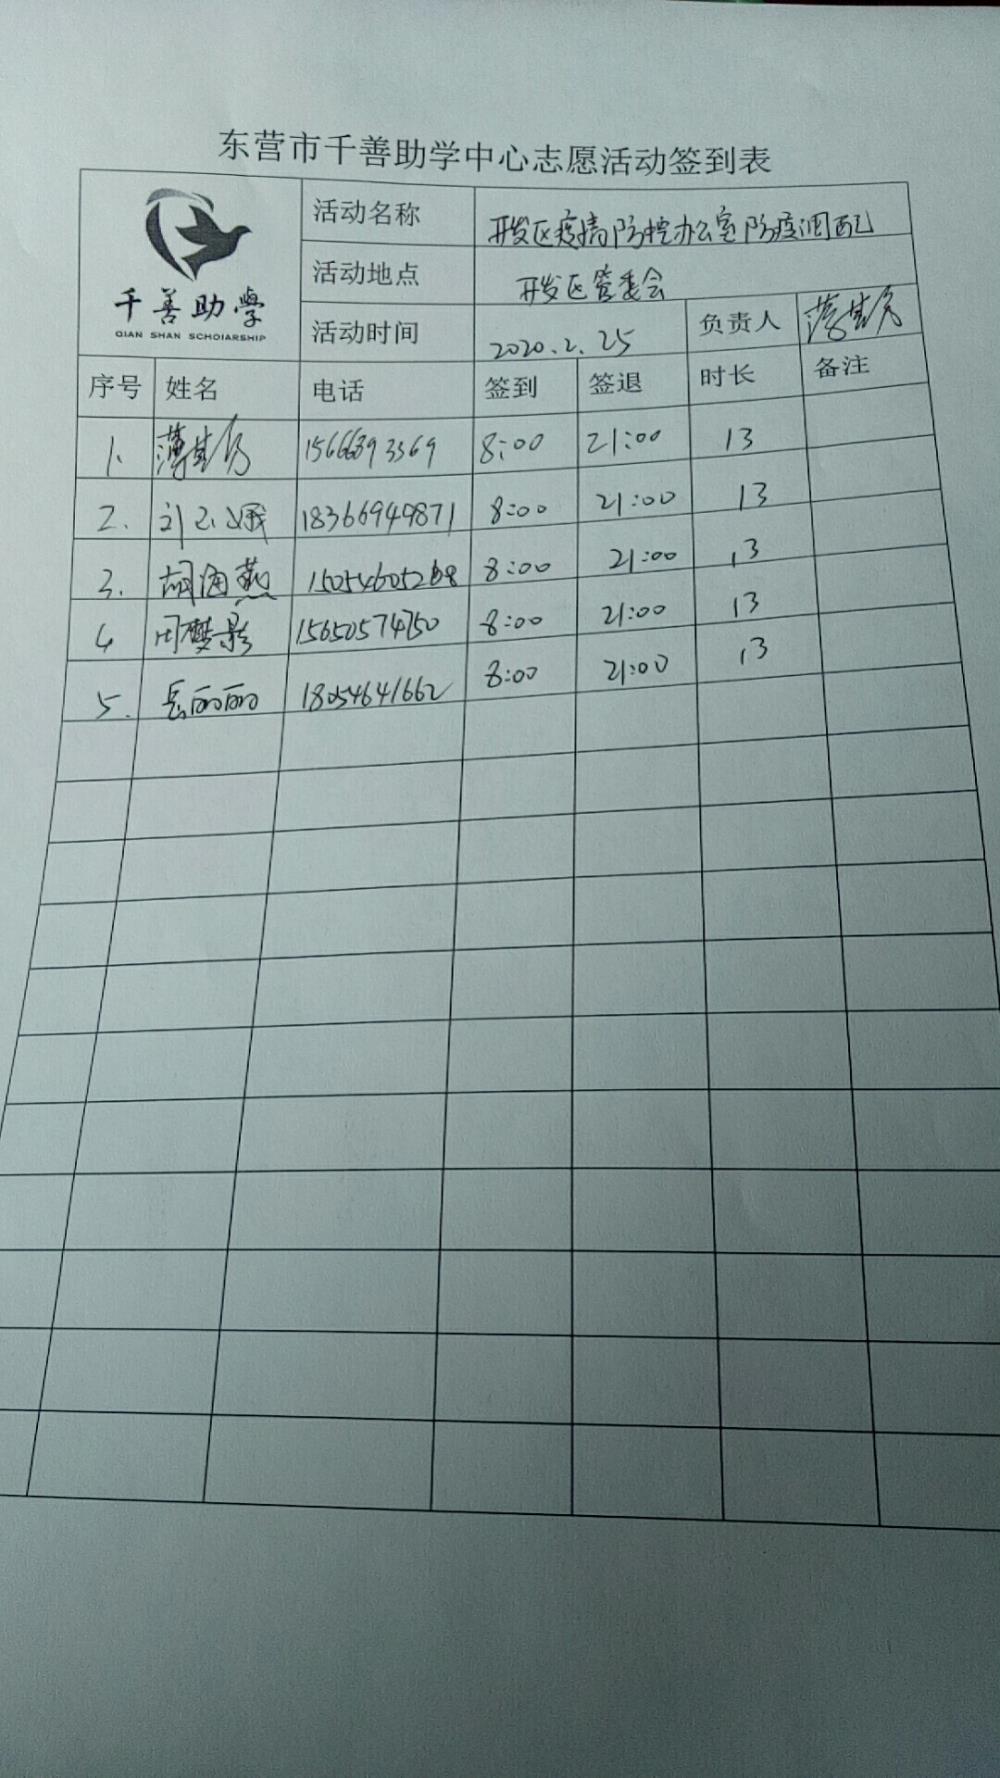 东营市千善助学中心志愿活动签到表
千善助學
QIAN SHAN SCHOIARSHIP
活动名称 开发区疫情防控办公室防疫调配
活动地点 开发区管委会
活动时间 2020.2.25 负责人
序号 姓名 电话 签到 签退 时长 备注
1、 15666893569 8:00 21:00 13
2. 18366949871 8:00 21:00 13
3. 胡海燕 15054605268 8:00 21:00 13
4 周梦影 15650574750 8:00 21:00 13
5. 岳丽丽 18054641662 8:00 21:00 13